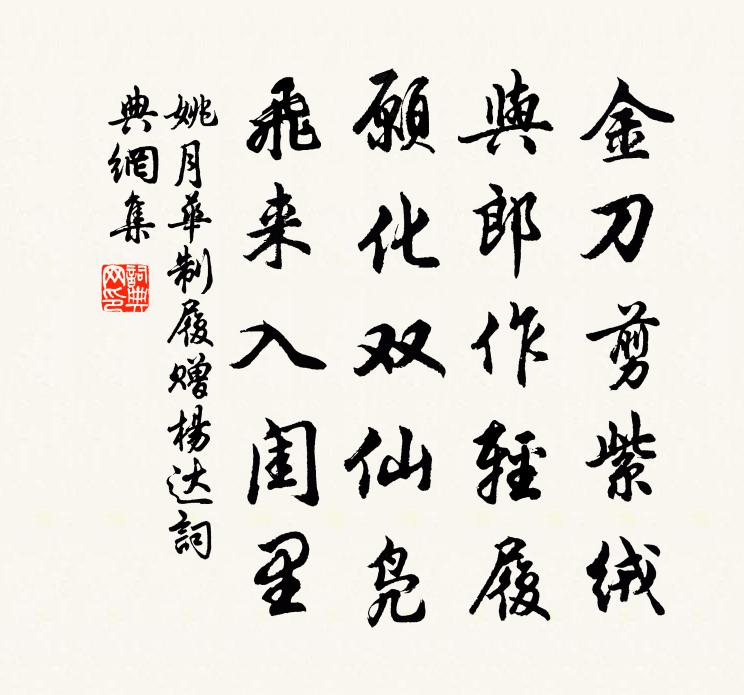 金刀剪紫绒
與郎作輕履
願化双仙凫
飛来入闺里
姚月華制履赠楊达詞
典網集
詞典网印